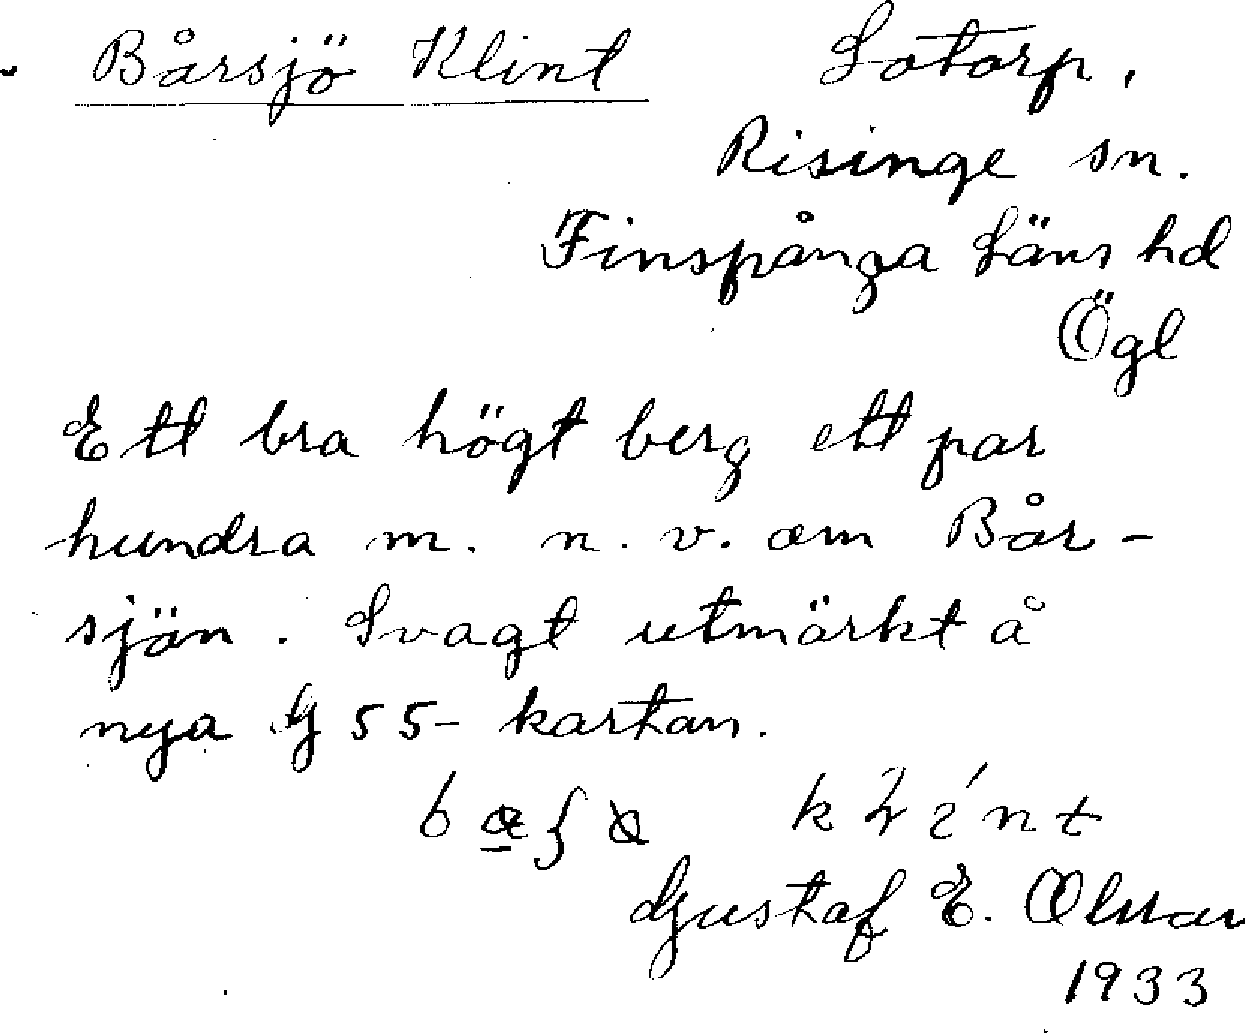 Bårsjö Klint Lotorp,
Risinge sn.
Finspånga Läns hd
Ögl
Ett bra högt berg ett par
hundra m. n. v. om Bår-
sjön. Svagt utmärkt å
nya G 55- kartan.
Gustaf E. Olsson
1933